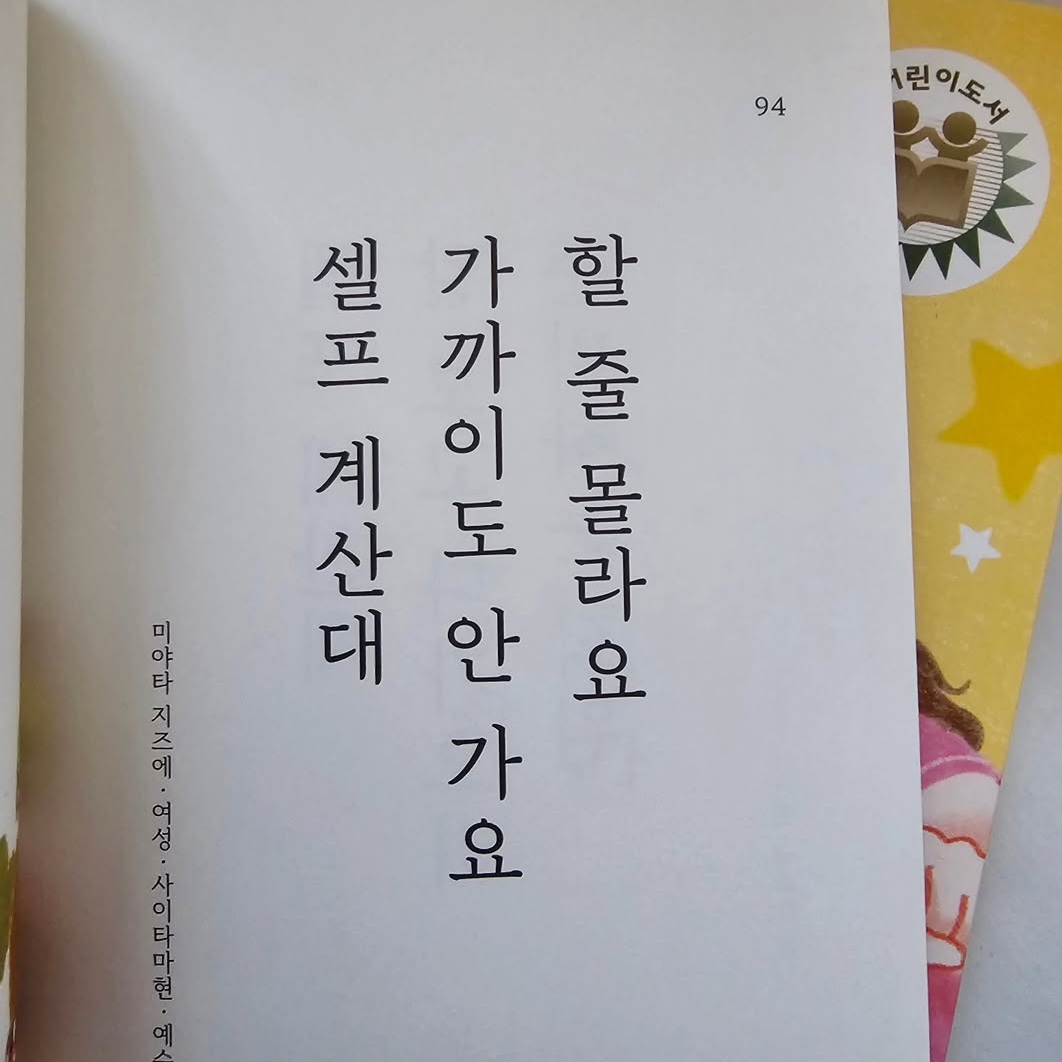 94
할 줄 몰라요
가까이도 안 가요
셀프 계산대
미야타 지즈에·여성·사이타마현·
어린이도서